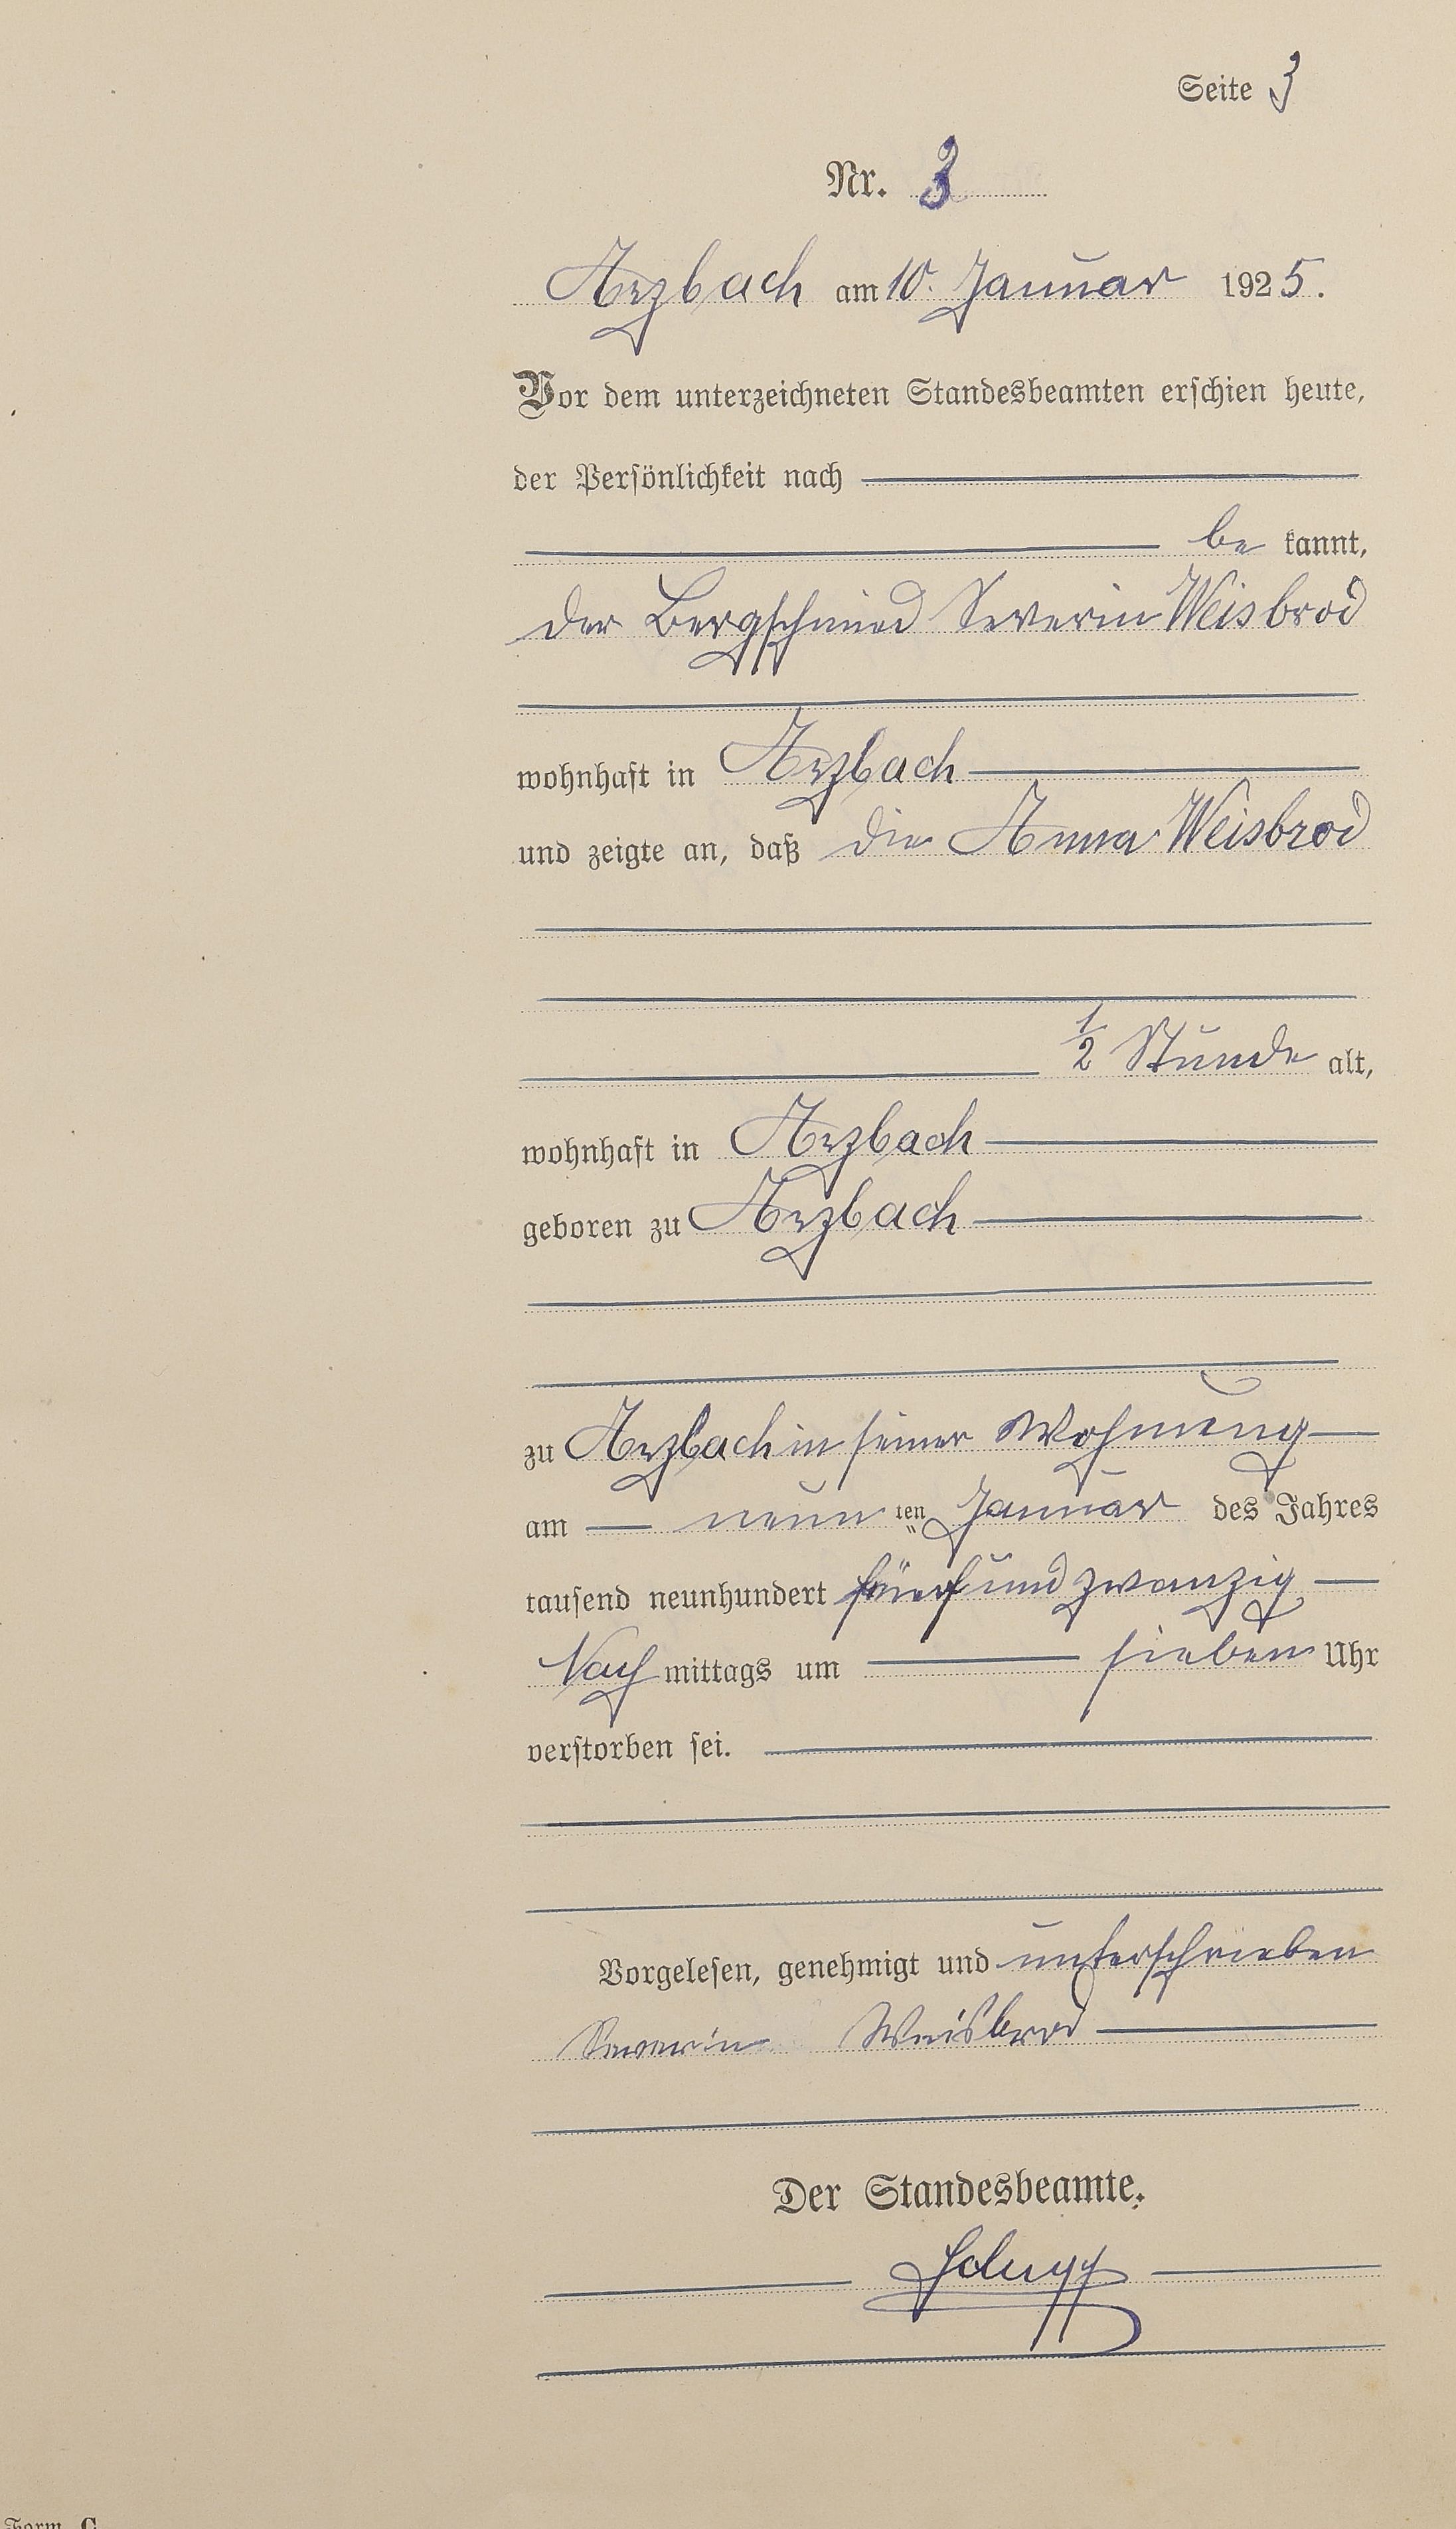 Seite 3
Nr. 3
Arzbach am 10. Januar 1925.
Vor dem unterzeichneten Standesbeamten erschien heute,
der Persönlichkeit nach
be kannt,
der Bergschmied Severin Weisbrod
wohnhaft in Arzbach
und zeigte an, daß die Anna Weisbrod
1/2 Stunde alt,
wohnhaft in Arzbach
geboren zu Arzbach
zu Arzbach in seiner Wohnung
am neun ten Januar des Jahres
tausend neunhundert fünf und zwanzig
Nach mittags um sieben Uhr
verstorben sei.
Vorgelesen, genehmigt und unterschrieben
Severin Weisbrod
Der Standesbeamte.
Form. C